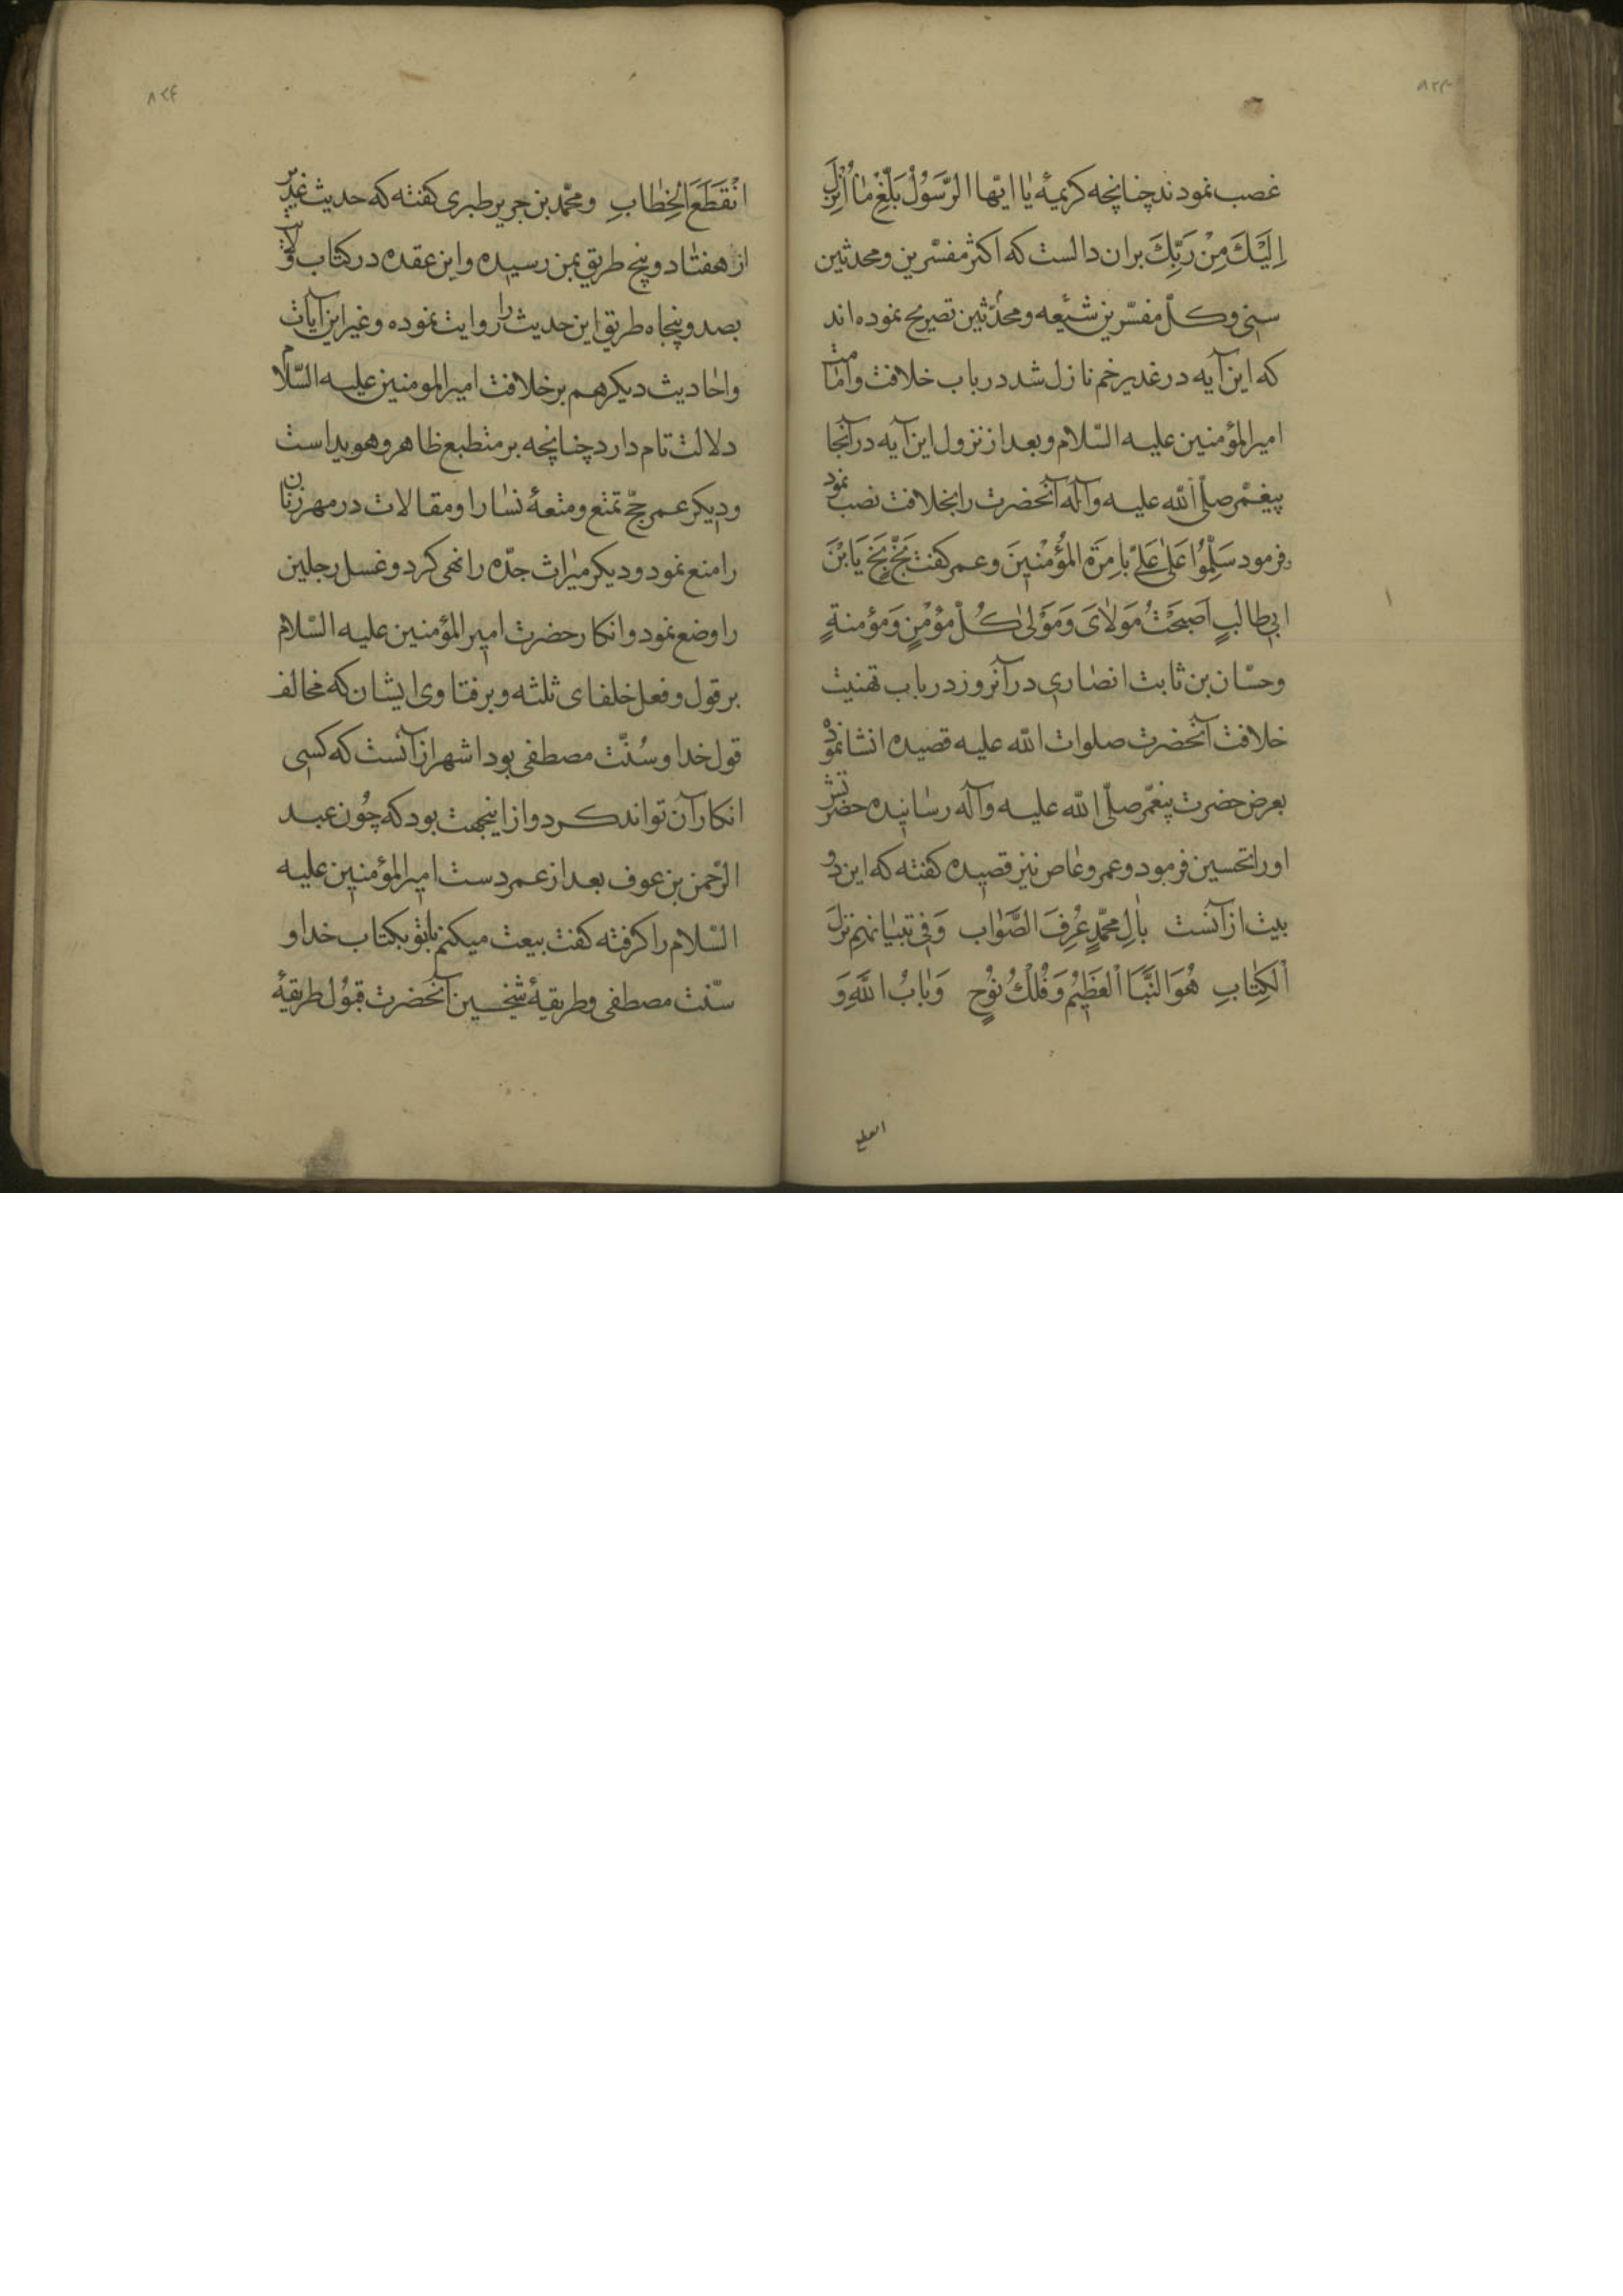 ۸۲۳
غصب نمودند چنانچه کریمهٔ یٰا ایّها الرَّسَوُلُ بَلِّغْ مٰا اُنْزِلَ
اِلَیْكَ مِنْ رَبِّكَ بران دالست که اکثر مفسّرین و محدثین
سنی و کلّ مفسّرین شیعه و محدّثین تصریح نموده اند
که این آیه در غدیر خم نازل شد در باب خلافت و امامت
امیر المؤمنین علیه السّلام و بعد از نزول این آیه در آنجا
پیغمّبر صلّی الله علیه و آله آنحضرت را بخلافت نصب نمود
و فرمود سَلِّمُوُا عَلیٰ عَلیٍّ بِاِمِرَةِ المُؤْمنینَ و عمر کفت بَخٍّ بَخٍّ یَا بْنَ
ابی طالبٍ اَصبحْتَ مَولٰایَ وَ مَوَلیٰ کُلّ مؤْمنٍ وَ مؤمنةٍ
و حسّان بن ثابت انصاری در آنروز در باب تهنیت
خلافت آنحضرت صلوات الله علیه قصیده انشا نموده
بعرض حضرت پیغمّبر صلّی الله علیه و آله رسانیده حضرتش
او را تحسین فرمود و عمرو عٰاص نیز قصیده کفته که این دو
بیت از آنست بِاٰلِ محمّدٍ عُرِفَ الصَّوٰاب وَ فی تبیانهِم نزلَ
اْلکِتٰابِ هُوَ النَّبَأ اْلعَظیْمُ وَ فُلْكُ نوُحٍ وَ بٰابُ اللهِ وَ
انْقَطَعَ الْخِطٰابِ و محمّد بن جریر طبری کفته که حدیث غدیر
از هفتاد و پنج طریق بمن رسیده و ابن عقده در کتاب ولایت
بصد و پنجاه طریق این حدیث را روایت نموده و غیر این آیات
و احادیث دیکر هم بر خلافت امیر المومنین علیه السّلام
دلالت تام دارد چنانچه بر متطبع ظاهر و هویداست
و دیکر عمر حجّ تمتع و متعهٔ نسٰا را و مقالات در مهر زنان
را منع نمود و دیکر میراث جدّه را نهی کرد و غسل رجلین
را وضع نمود و انکار حضرت امیر المؤمنین علیه السّلام
بر قول و فعل خلفای ثلثه و بر فتاوی ایشان که مخالف
قول خدا و سُنّت مصطفی بود اشهر از آنست که کسی
انکار آن تواند کرد و از اینجهت بود که چوُن عبد
الرّحمن بن عوف بعد از عمر دست امیر المؤمنین علیه
السّلام را کرفته کفت بیعت میکنم باتو بکتاب خدا و
سنّت مصطفی و طریقهٔ شیخین آنحضرت قبوُل طریقهٔ
۸۲۴